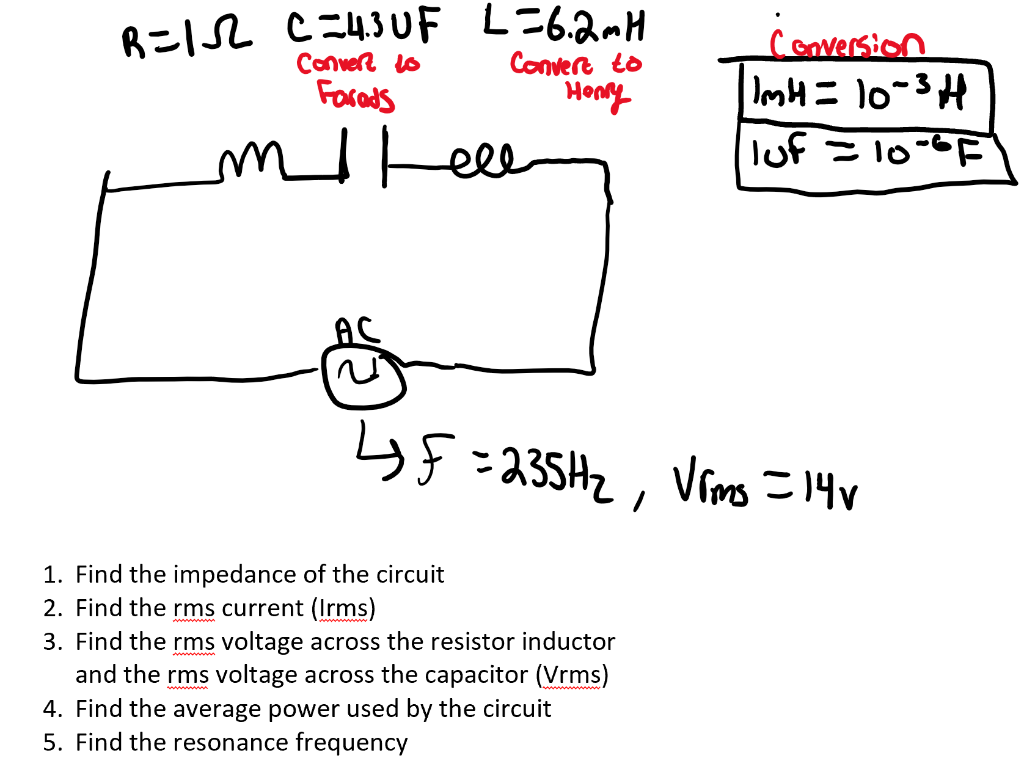 R=1Ω C=4.3UF L=6.2mH
Convert to Farads
Convert to Henry
Conversion
1mH = 10⁻³ H
1uf = 10⁻⁶ F
AC
↳ F = 235Hz, Vrms = 14v
1. Find the impedance of the circuit
2. Find the rms current (Irms)
3. Find the rms voltage across the resistor inductor
and the rms voltage across the capacitor (Vrms)
4. Find the average power used by the circuit
5. Find the resonance frequency